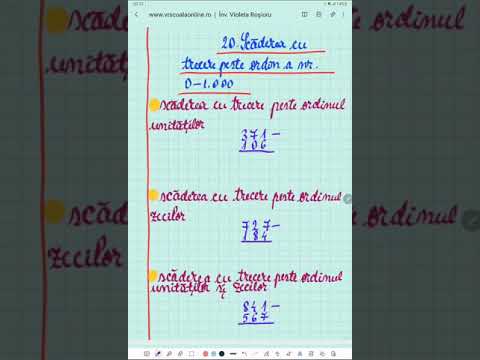 www.vrscoalaonline.ro | Înv. Violeta Roșioru
20. Scăderea cu
trecere peste ordin a nr.
0-1.000
scăderea cu trecere peste ordinul
unităților
371-
106
scăderea cu trecere peste ordinul
zecilor
727-
184
scăderea cu trecere peste ordinul
unităților și zecilor
841-
567